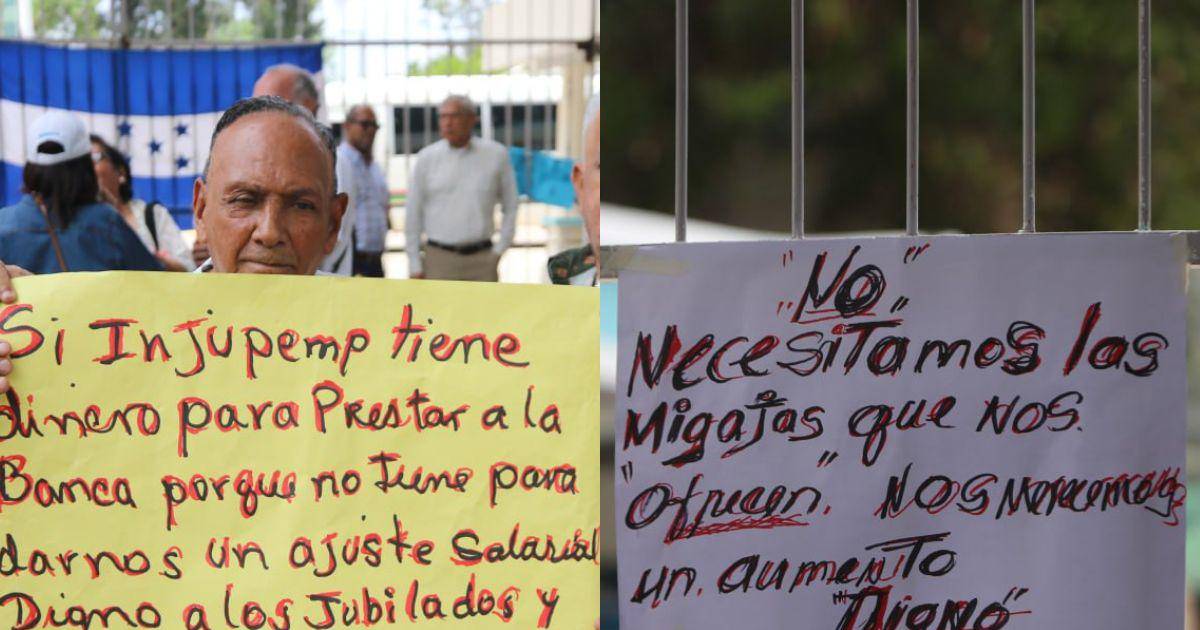 Si Injupemp tiene
dinero para Prestar a la
Banca porque no tiene para
darnos un ajuste Salarial
Digno a los Jubilados y
"NO"
Necesitamos las
Migajas que NOS.
"Ofrecen". NOS Merecemos
un. aumento
"Digno"